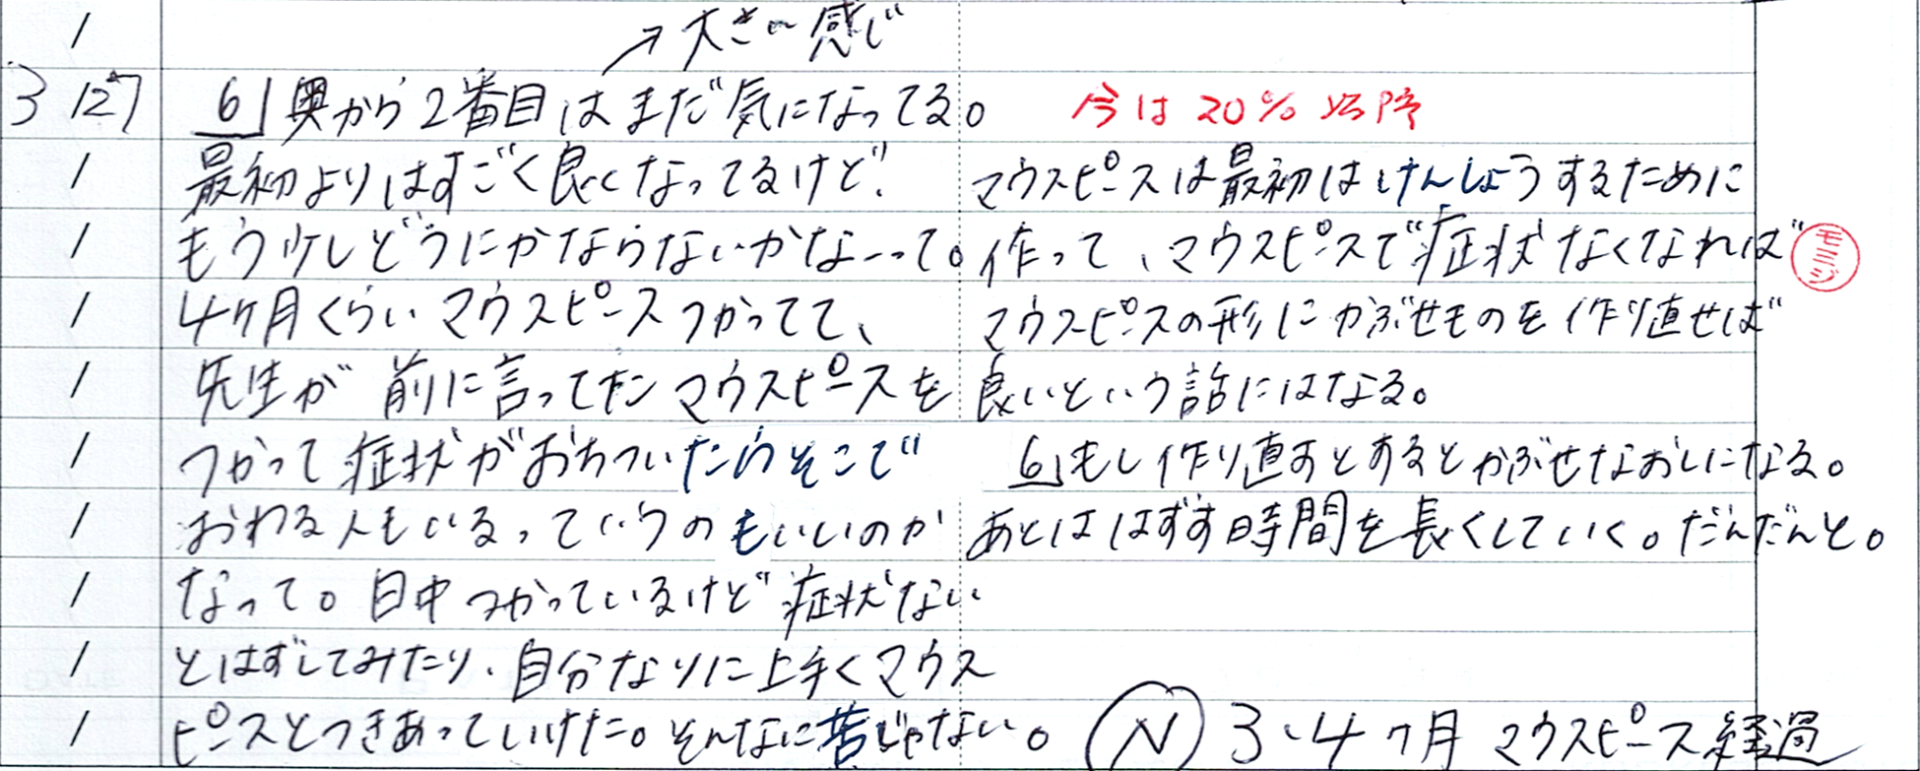 →大きい感じ
3 127 6｣奥から2番目はまだ気になってる。 今は20%以降
最初よりはすごく良くなってるけど、 マウスピースは最初はけんしょうするために
もう少しどうにかならないかなーって。作って、マウスピースで症状なくなれば
モミジ
4ヶ月くらいマウスピースつかってて、 マウスピースの形にかぶせものを作り直せば
先生が前に言ってたマウスピースを 良いという話にはなる。
つかって症状がおちついたらそこで 6｣もし作り直すとするとかぶせなおしになる。
おわる人もいるっていうのもいいのか あとははずす時間を長くしていく。だんだんと。
なって。日中つかっているけど症状ない
とはずしてみたり、自分なりに上手くマウス
ピースとつきあっていけた。そんなに苦じゃない。 Ⓝ 3、4ヶ月 マウスピース経過